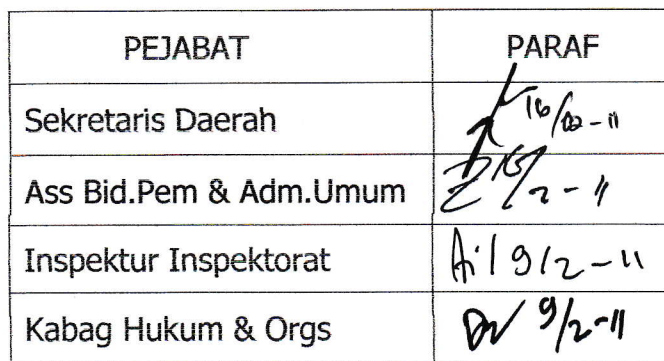 PEJABAT PARAF
Sekretaris Daerah 16/02-11
Ass Bid.Pem & Adm.Umum 15/2-11
Inspektur Inspektorat 9/2-11
Kabag Hukum & Orgs 9/2-11